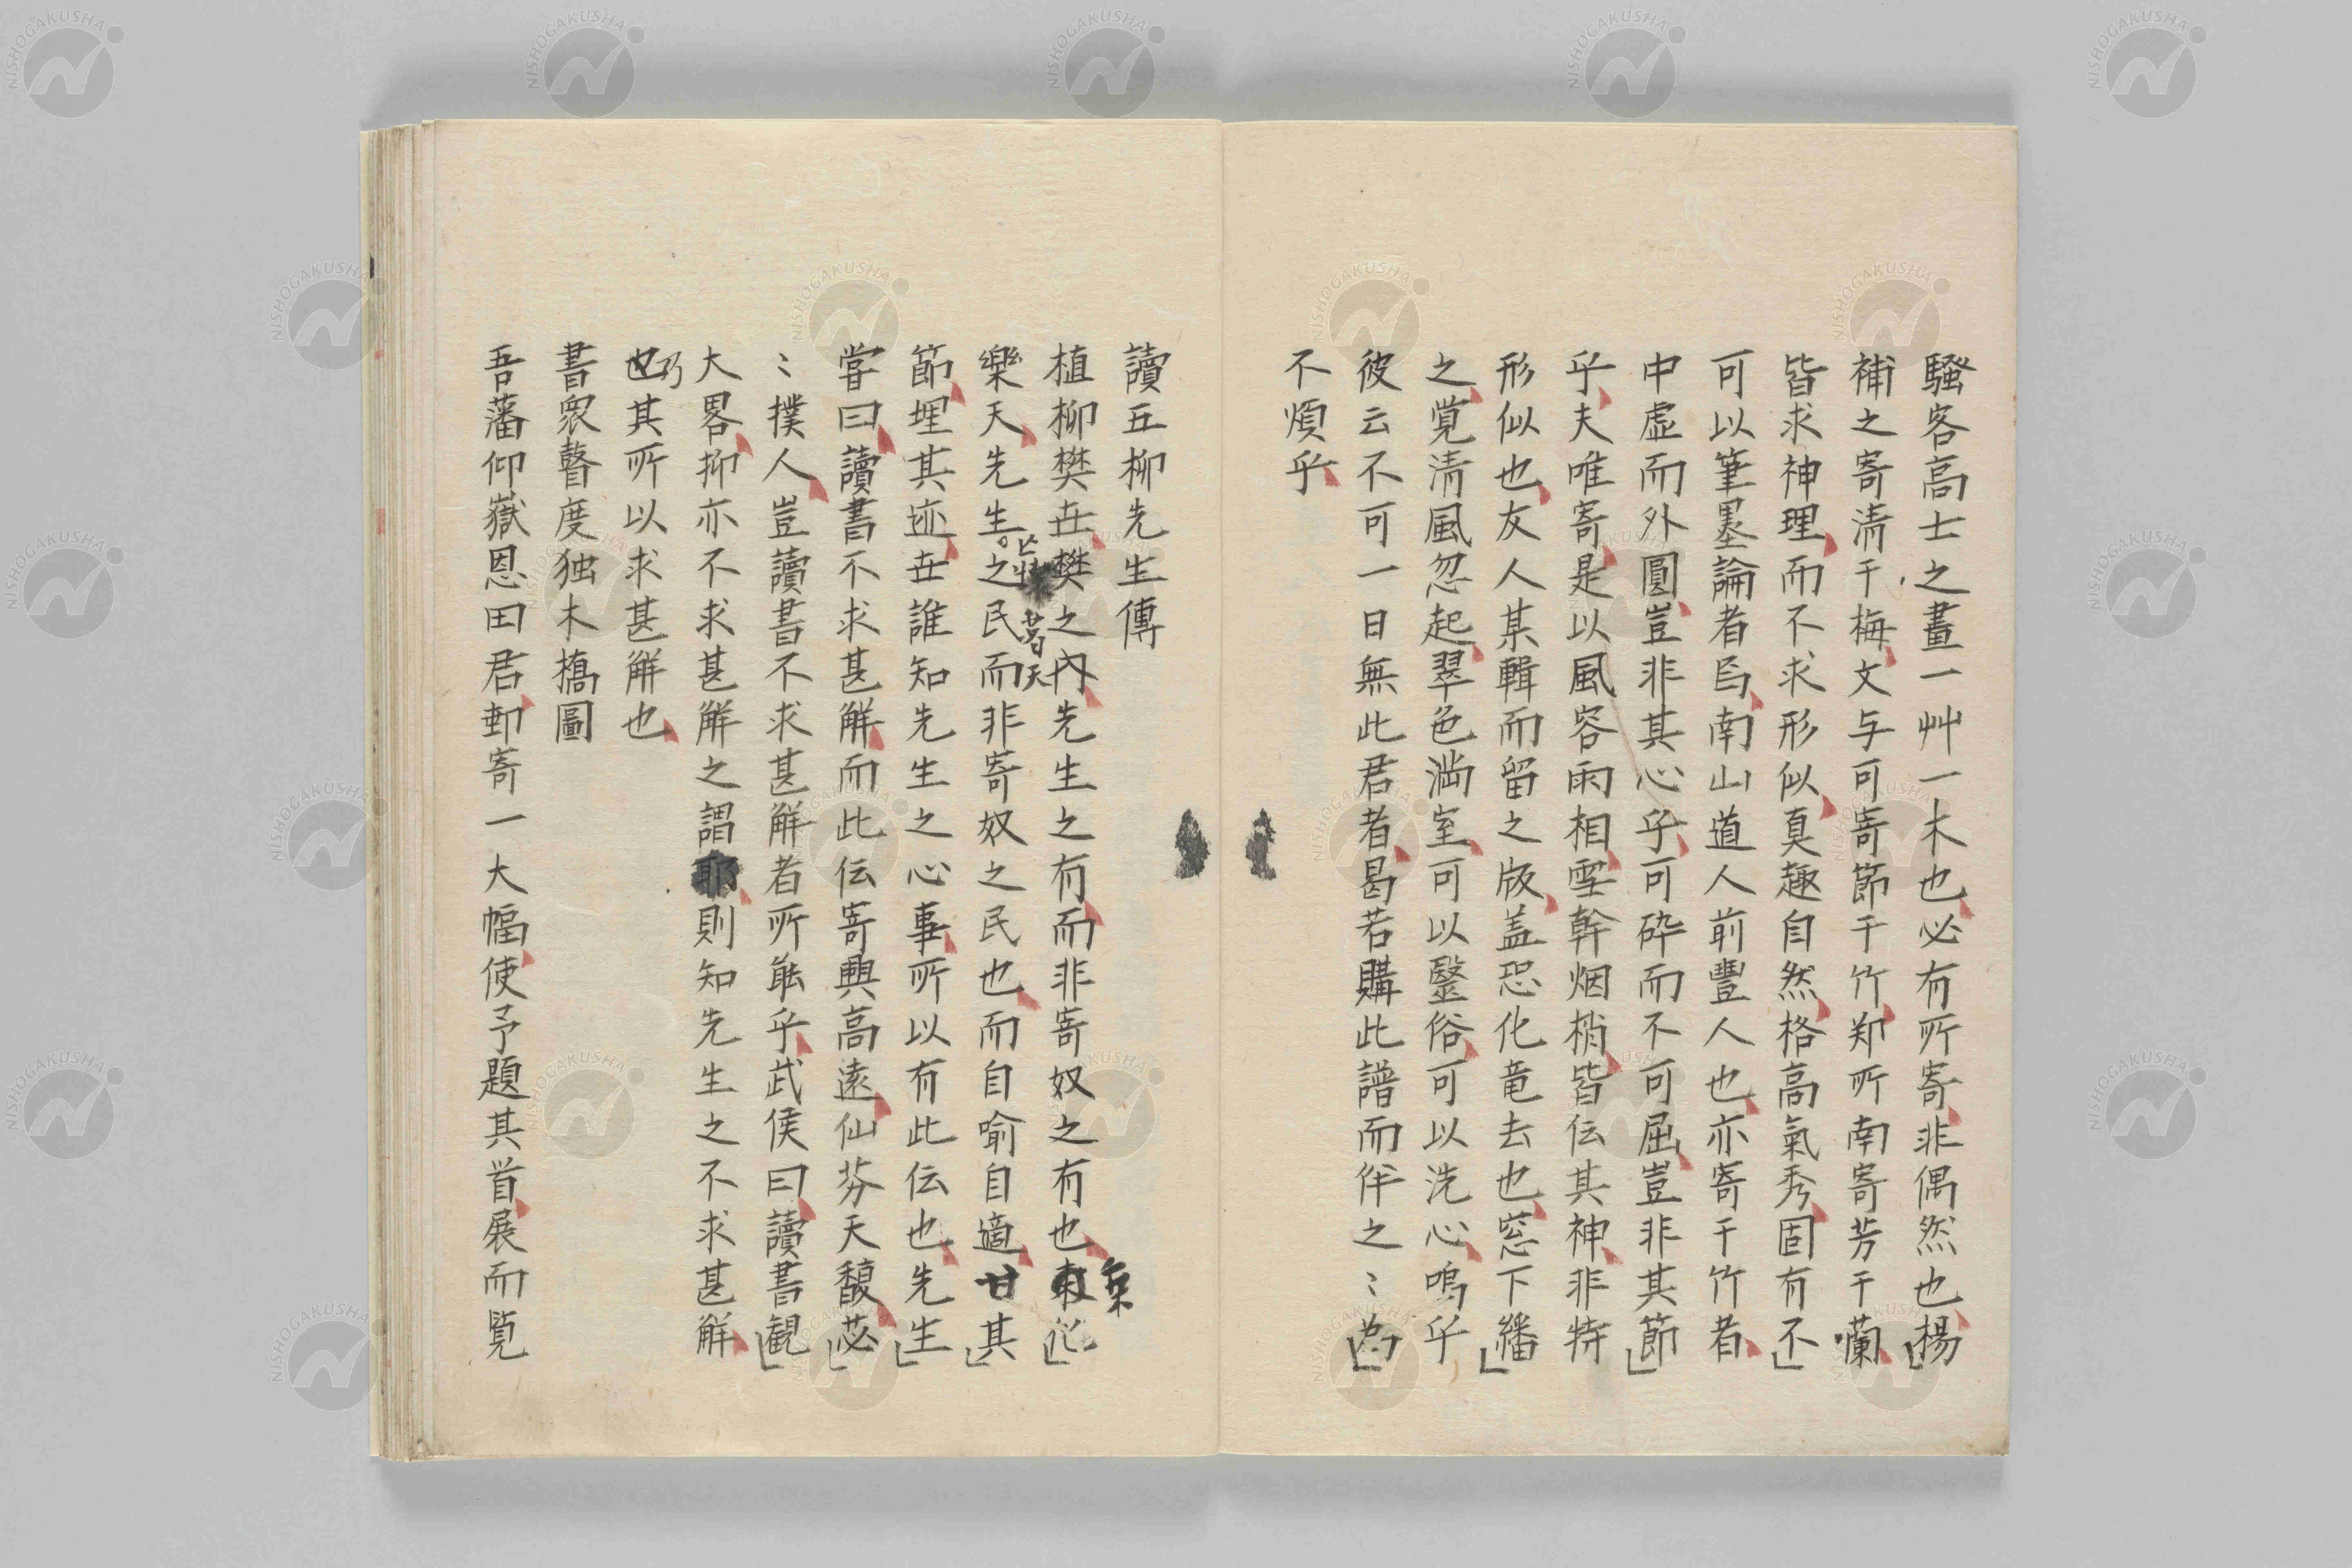 騷客高士之畫一艸一木也必有所寄非偶然也楊
補之寄清于梅文与可寄節于竹郑所南寄芳于蘭
皆求神理而不求形似真趣自然格高氣秀固有不
可以筆墨論者焉南山道人前豐人也亦寄于竹者
中虚而外圓豈非其心乎可砕而不可屈豈非其節
乎夫唯寄是以風容雨相雪幹烟梢皆伝其神非特
形似也友人某輯而留之版盖恐化竜去也窓下繙
之覚清風忽起翠色満室可以醫俗可以洗心嗚乎
彼云不可一日無此君者曷若購此譜而伴之〻為
不煩乎
讀五柳先生傳
植柳樊𠀍樊之内先生之有而非寄奴之有也
樂天先生之民而非寄奴之民也而自喻自適其
節埋其迹𠀍誰知先生之心事所以有此伝也先生
甞曰讀書不求甚解而此伝寄興高遠仙芬天馥苾
〻撲人豈讀書不求甚解者所能乎武侯曰讀書観
大畧抑亦不求甚解之謂耶則知先生之不求甚解
乃其所以求甚解也
書衆瞽度独木橋圖
吾藩仰嶽恩田君郵寄一大幅使予題其首展而覧
NISHOGAKUSHA